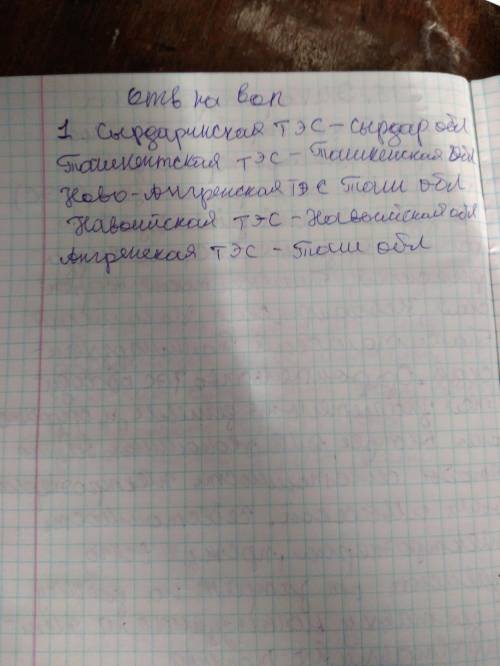 Отв на воп
1 Сырдаринская ТЭС - Сырдар обл
Ташкентская ТЭС - Ташкенская Обл
Ново-Ангренская ТЭС Таш обл
Навоийская ТЭС - Навоийская обл
Ангренская ТЭС - Таш обл